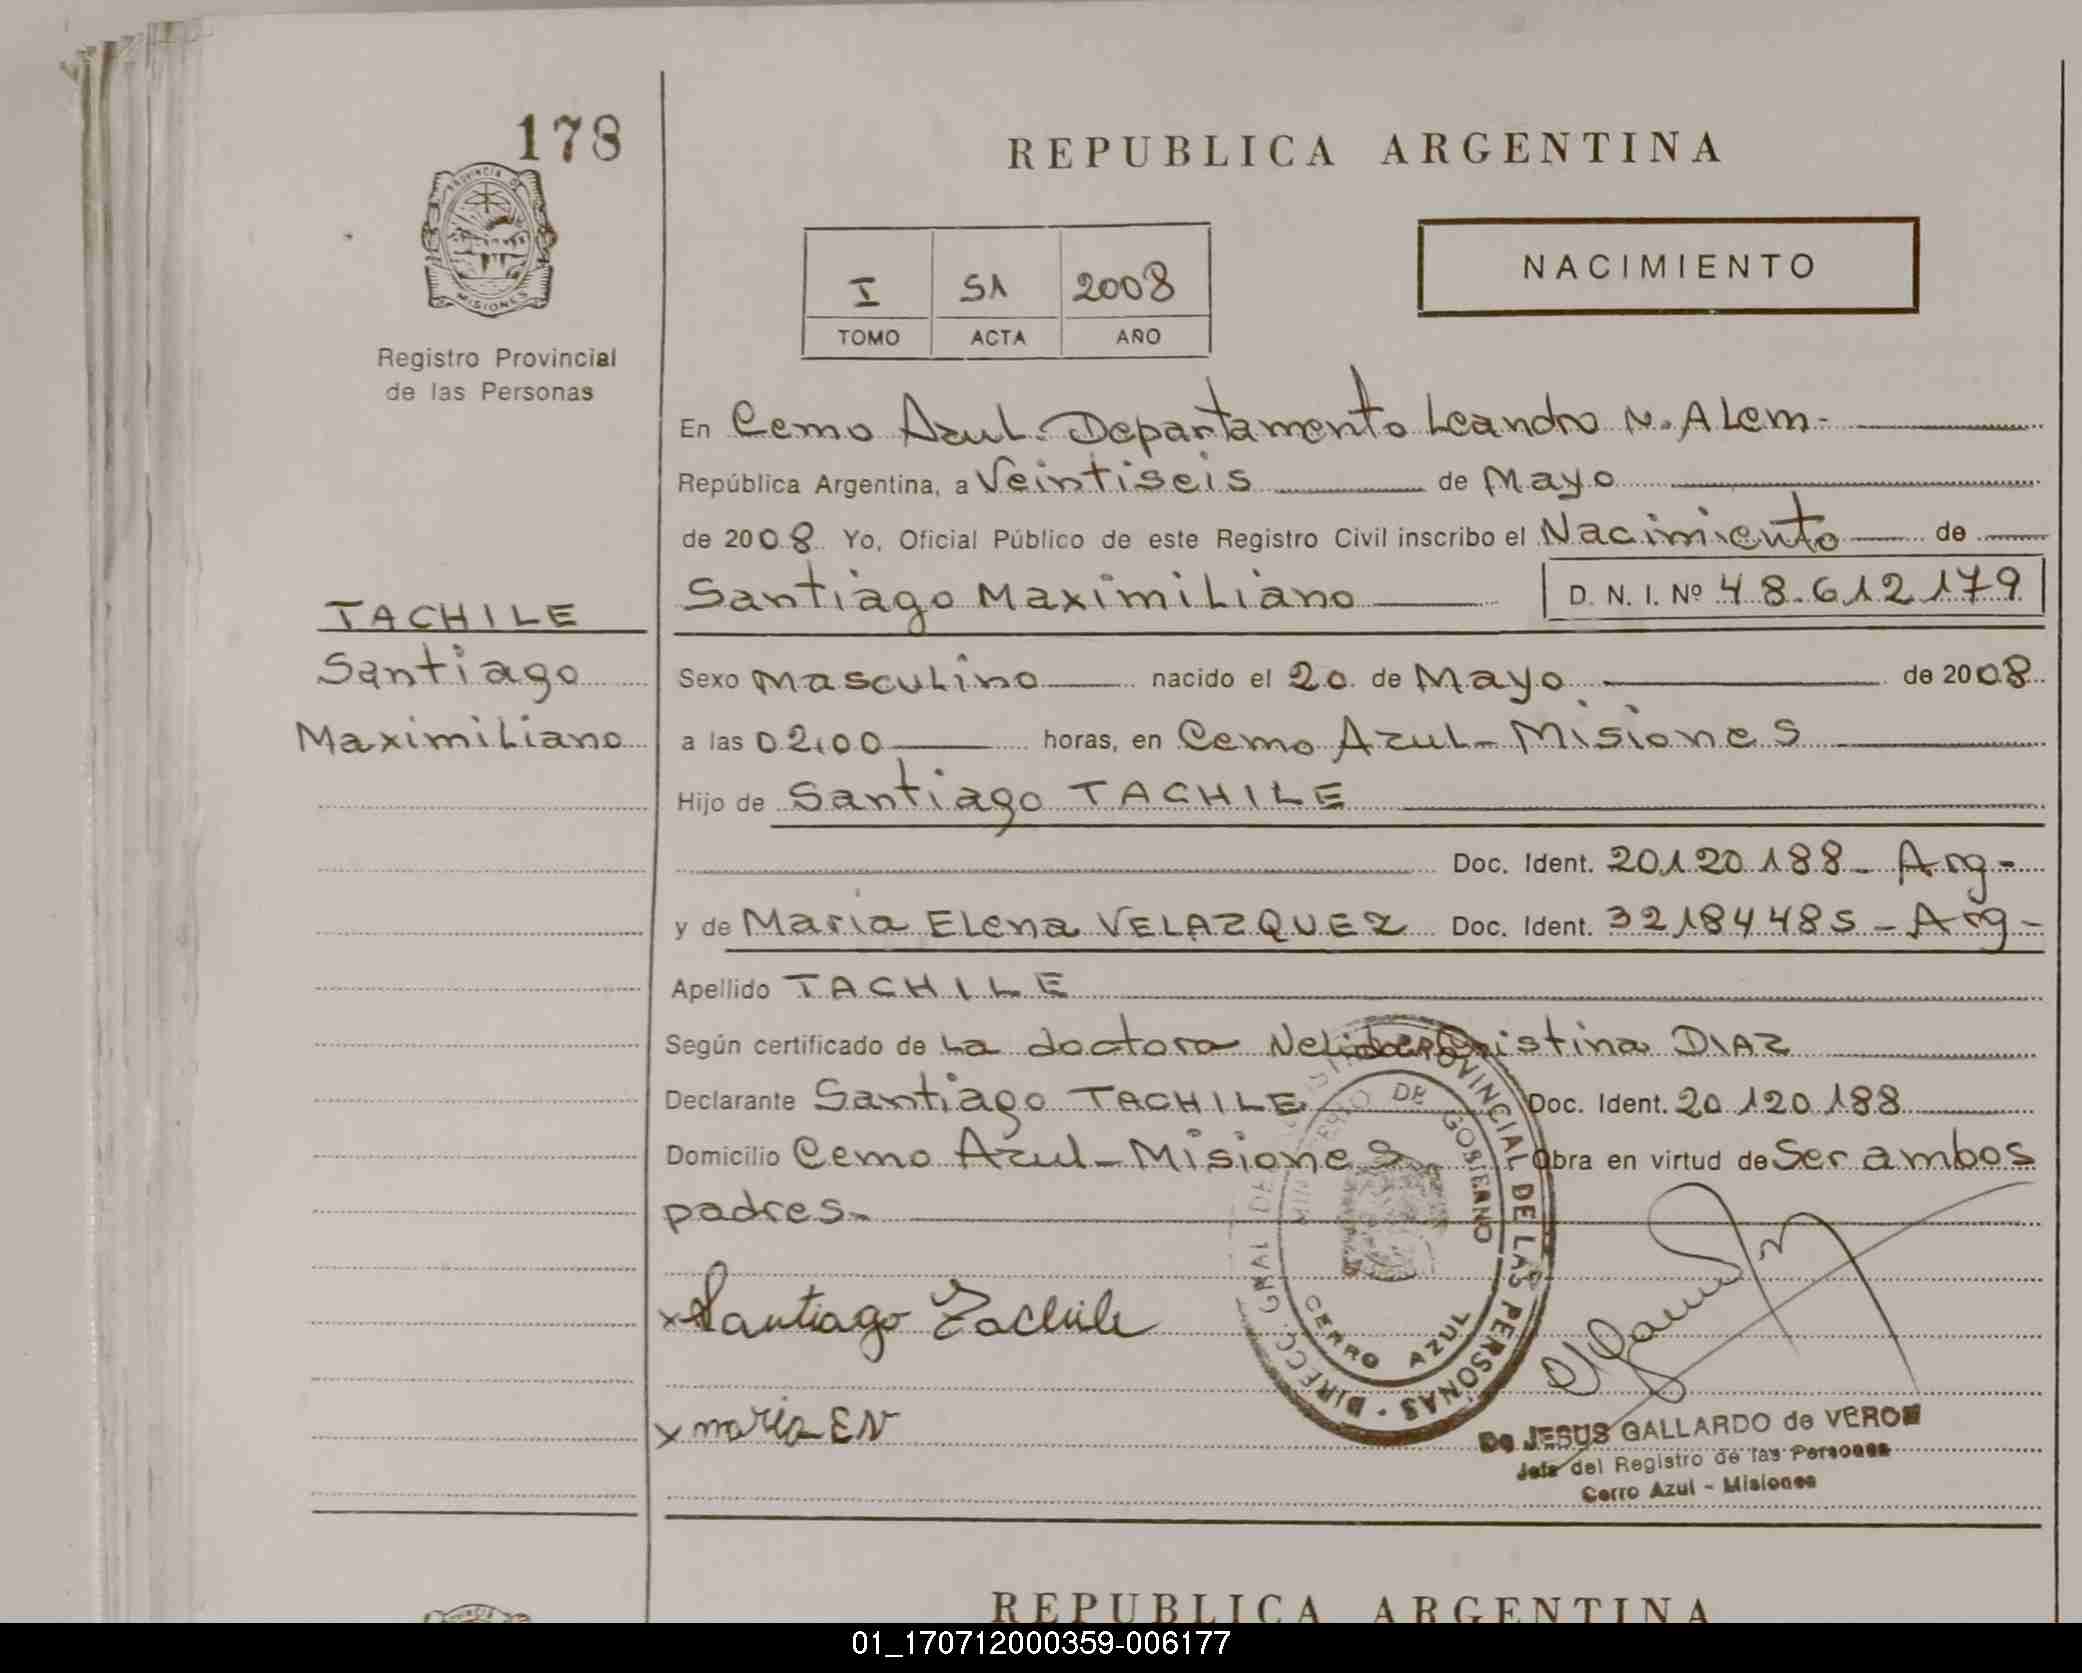 178
PROVINCIA DE
MISIONES
Registro Provincial
de las Personas
REPUBLICA ARGENTINA
NACIMIENTO
I 51 2008
TOMO ACTA AÑO
En Cerro Azul. Departamento Leandro N. ALem-
República Argentina, a Veintiseis de Mayo
de 2008 Yo, Oficial Público de este Registro Civil inscribo el Nacimiento de
Santiago MaximiLiano D. N. I. Nº 48.612179
TACHILE
Santiago
MaximiLiano
Sexo MascuLino nacido el 20 de Mayo de 2008
a las 02,00 horas, en Cerro Azul-Misiones
Hijo de Santiago TACHILE
Doc. Ident. 20120188-Arg-
y de Maria ELena VELAZQUEZ Doc. Ident. 32184485-Arg-
Apellido TACHILE
Según certificado de La doctora Nelida Cristina DIAZ
Declarante Santiago TACHILE Doc. Ident. 20120188
Domicilio Cerro Azul-Misiones Obra en virtud de Ser ambos
padres-
DIRECC. GRAL DEL PROVINCIAL DE LAS PERSONAS
MINISTERIO DE GOBIERNO
CERRO AZUL
x Santiago Tachile
x maria EN
De JESUS GALLARDO de VERON
Jefe del Registro de las Personas
Cerro Azul - Misiones
REPUBLICA ARGENTINA
01_170712000359-006177